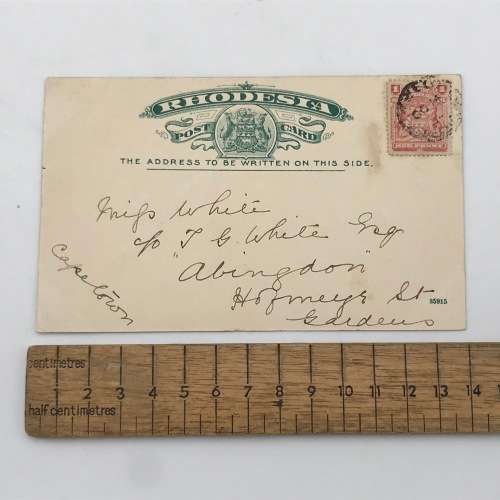 RHODESIA
POST CARD
THE ADDRESS TO BE WRITTEN ON THIS SIDE.
1 1
ONE PENNY
Miss White
c/o T G White Esq
"Abingdon"
Hofmeyr St
Gardens
Capetown
35915
centimetres
1 2 3 4 5 6 7 8 9 10 11 12 13 14
half centimetres